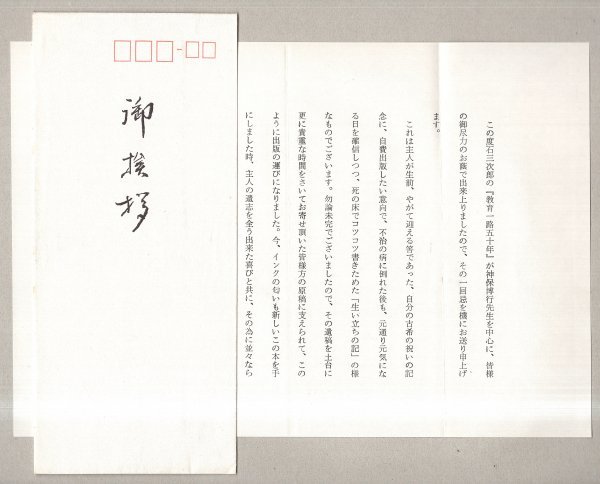 御挨拶
この度石三次郎の『教育一路五十年』が神保博行先生を中心に、皆様
の御尽力のお蔭で出来上りましたので、その一回忌を機にお送り申上げ
ます。
これは主人が生前、やがて迎える筈であった、自分の古希の祝いの記
念に、自費出版したい意向で、不治の病に倒れた後も、元通り元気にな
る日を確信しつつ、死の床でコツコツ書きためた『生い立ちの記』の様
なものでございます。勿論未完でございましたので、その遺稿を土台に
更に貴重な時間をさいてお寄せ頂いた皆様方の原稿に支えられて、この
ように出版の運びになりました。今、インクの匂いも新しいこの本を手
にしました時、主人の遺志を全う出来た喜びと共に、その為に並々なら